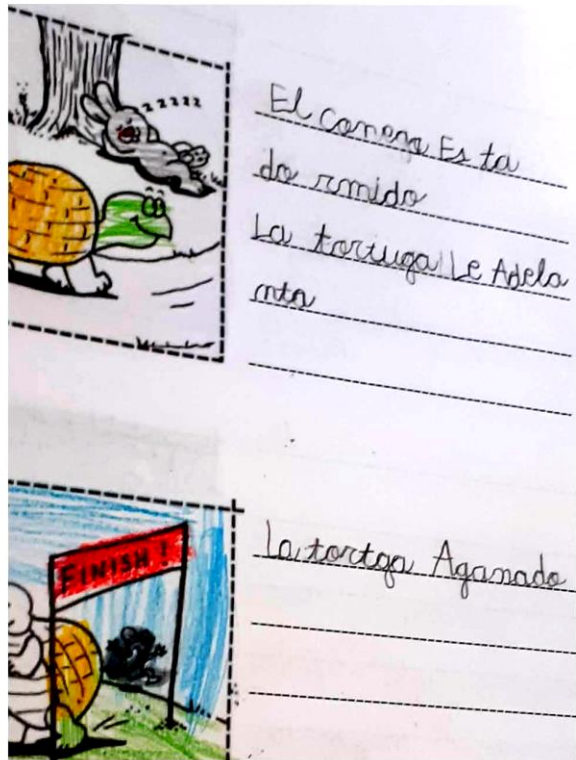 zzzzz
El conena Es ta
do rmido
La tortuga Le Adela
nta
FINISH!
La tortga Aganado